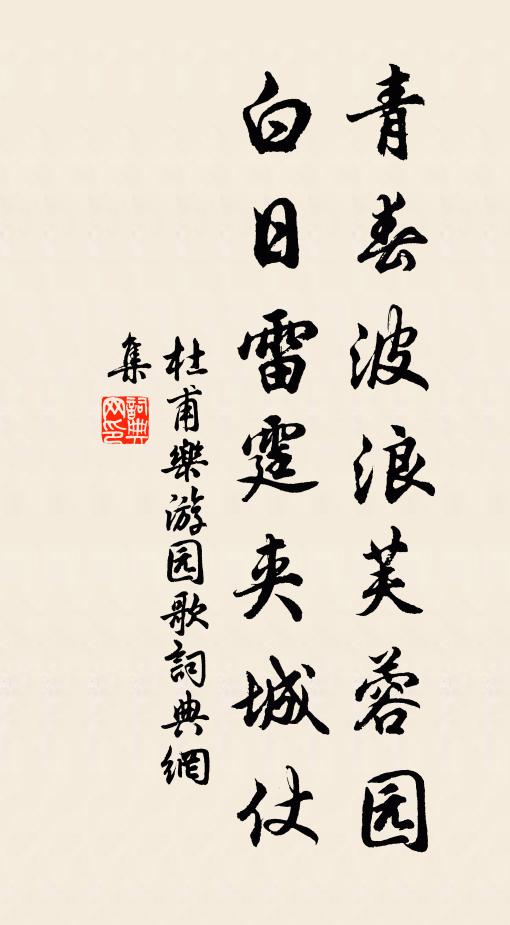 青春波浪芙蓉园
白日雷霆夹城仗
杜甫樂游园歌詞典網
集
詞典网印